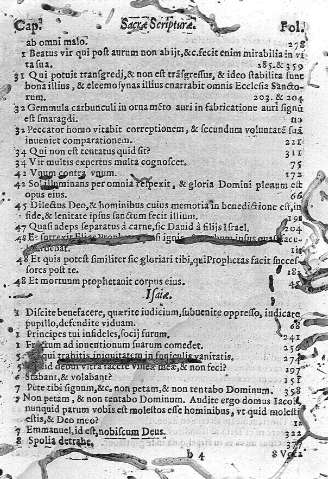 Cap. Sacræ Scripturæ. Fol.
ab omni malo. 278
1 Beatus vir qui post aurum non abijt, &c. fecit enim mirabilia in vi
ta sua. 285. & 359
31 Qui potuit transgredi, & non est trãsgressus, & ideo stabilita sunt
bona illius, & eleemosynas illius enarrabit omnis Ecclesia Sancto-
rum. 203. & 204
32 Gemmula carbunculi in ornamẽto auri in fabricatione auri signũ
est smaragdi.
32 Peccator homo vitabit correptionem, & secundum voluntatẽ suã
inueniet comparationem. 221
34 Qui non est tentatus quid sit? 311
34 Vir multis expertus multa cognoscet. 75
42 Vnum contra vnum. 172
42 Sol illuminans per omnia respexit, & gloria Domini plenum est
opus eius. 66
45 Dilectus Deo, & hominibus cuius memoria in benedictione est, in
fide, & lenitate ipsius sanctum fecit illium. 191
47 Quasi adeps separatus à carne, sic Dauid à filijs Israel. 204
48 ignis
48 Et quis potest similiter sic gloriari tibi, qui Prophetas facit succes
sores post te.
48 Et mortuum prophetauit corpus eius.
Isaiæ.
1 Discite benefacere, quærite iudicium, subuenite oppresso, iudicate
pupillo, defendite viduam. 68
1 Principes tui infideles, socij furum. 241
ad inuentionum suarum comedet.
5 trahitis iniquitatem in funiculis vanitatis. 274
quid debui vltra facere vineæ meæ, & non feci? 197
6 Stabant, & volabant? 251
7 Pete tibi signum, &c. non petam, & non tentabo Dominum. 358
7 Non petam, & non tentabo Dominum. Audite ergo domus Iacob,
nunquid parum vobis est molestos esse hominibus, vt quid molesti
estis, & Deo meo?
7 Emmanuel, id est, nobiscum Deus. 322
8 Spolia detrahe, 377
b 4 8 Voca